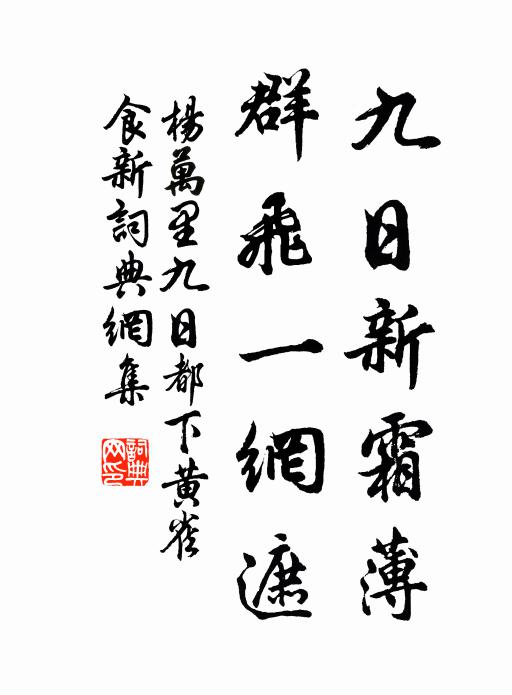 九日新霜薄
群飛一網遮
楊萬里九日都下黃雀
食新詞典網集
詞典
网印